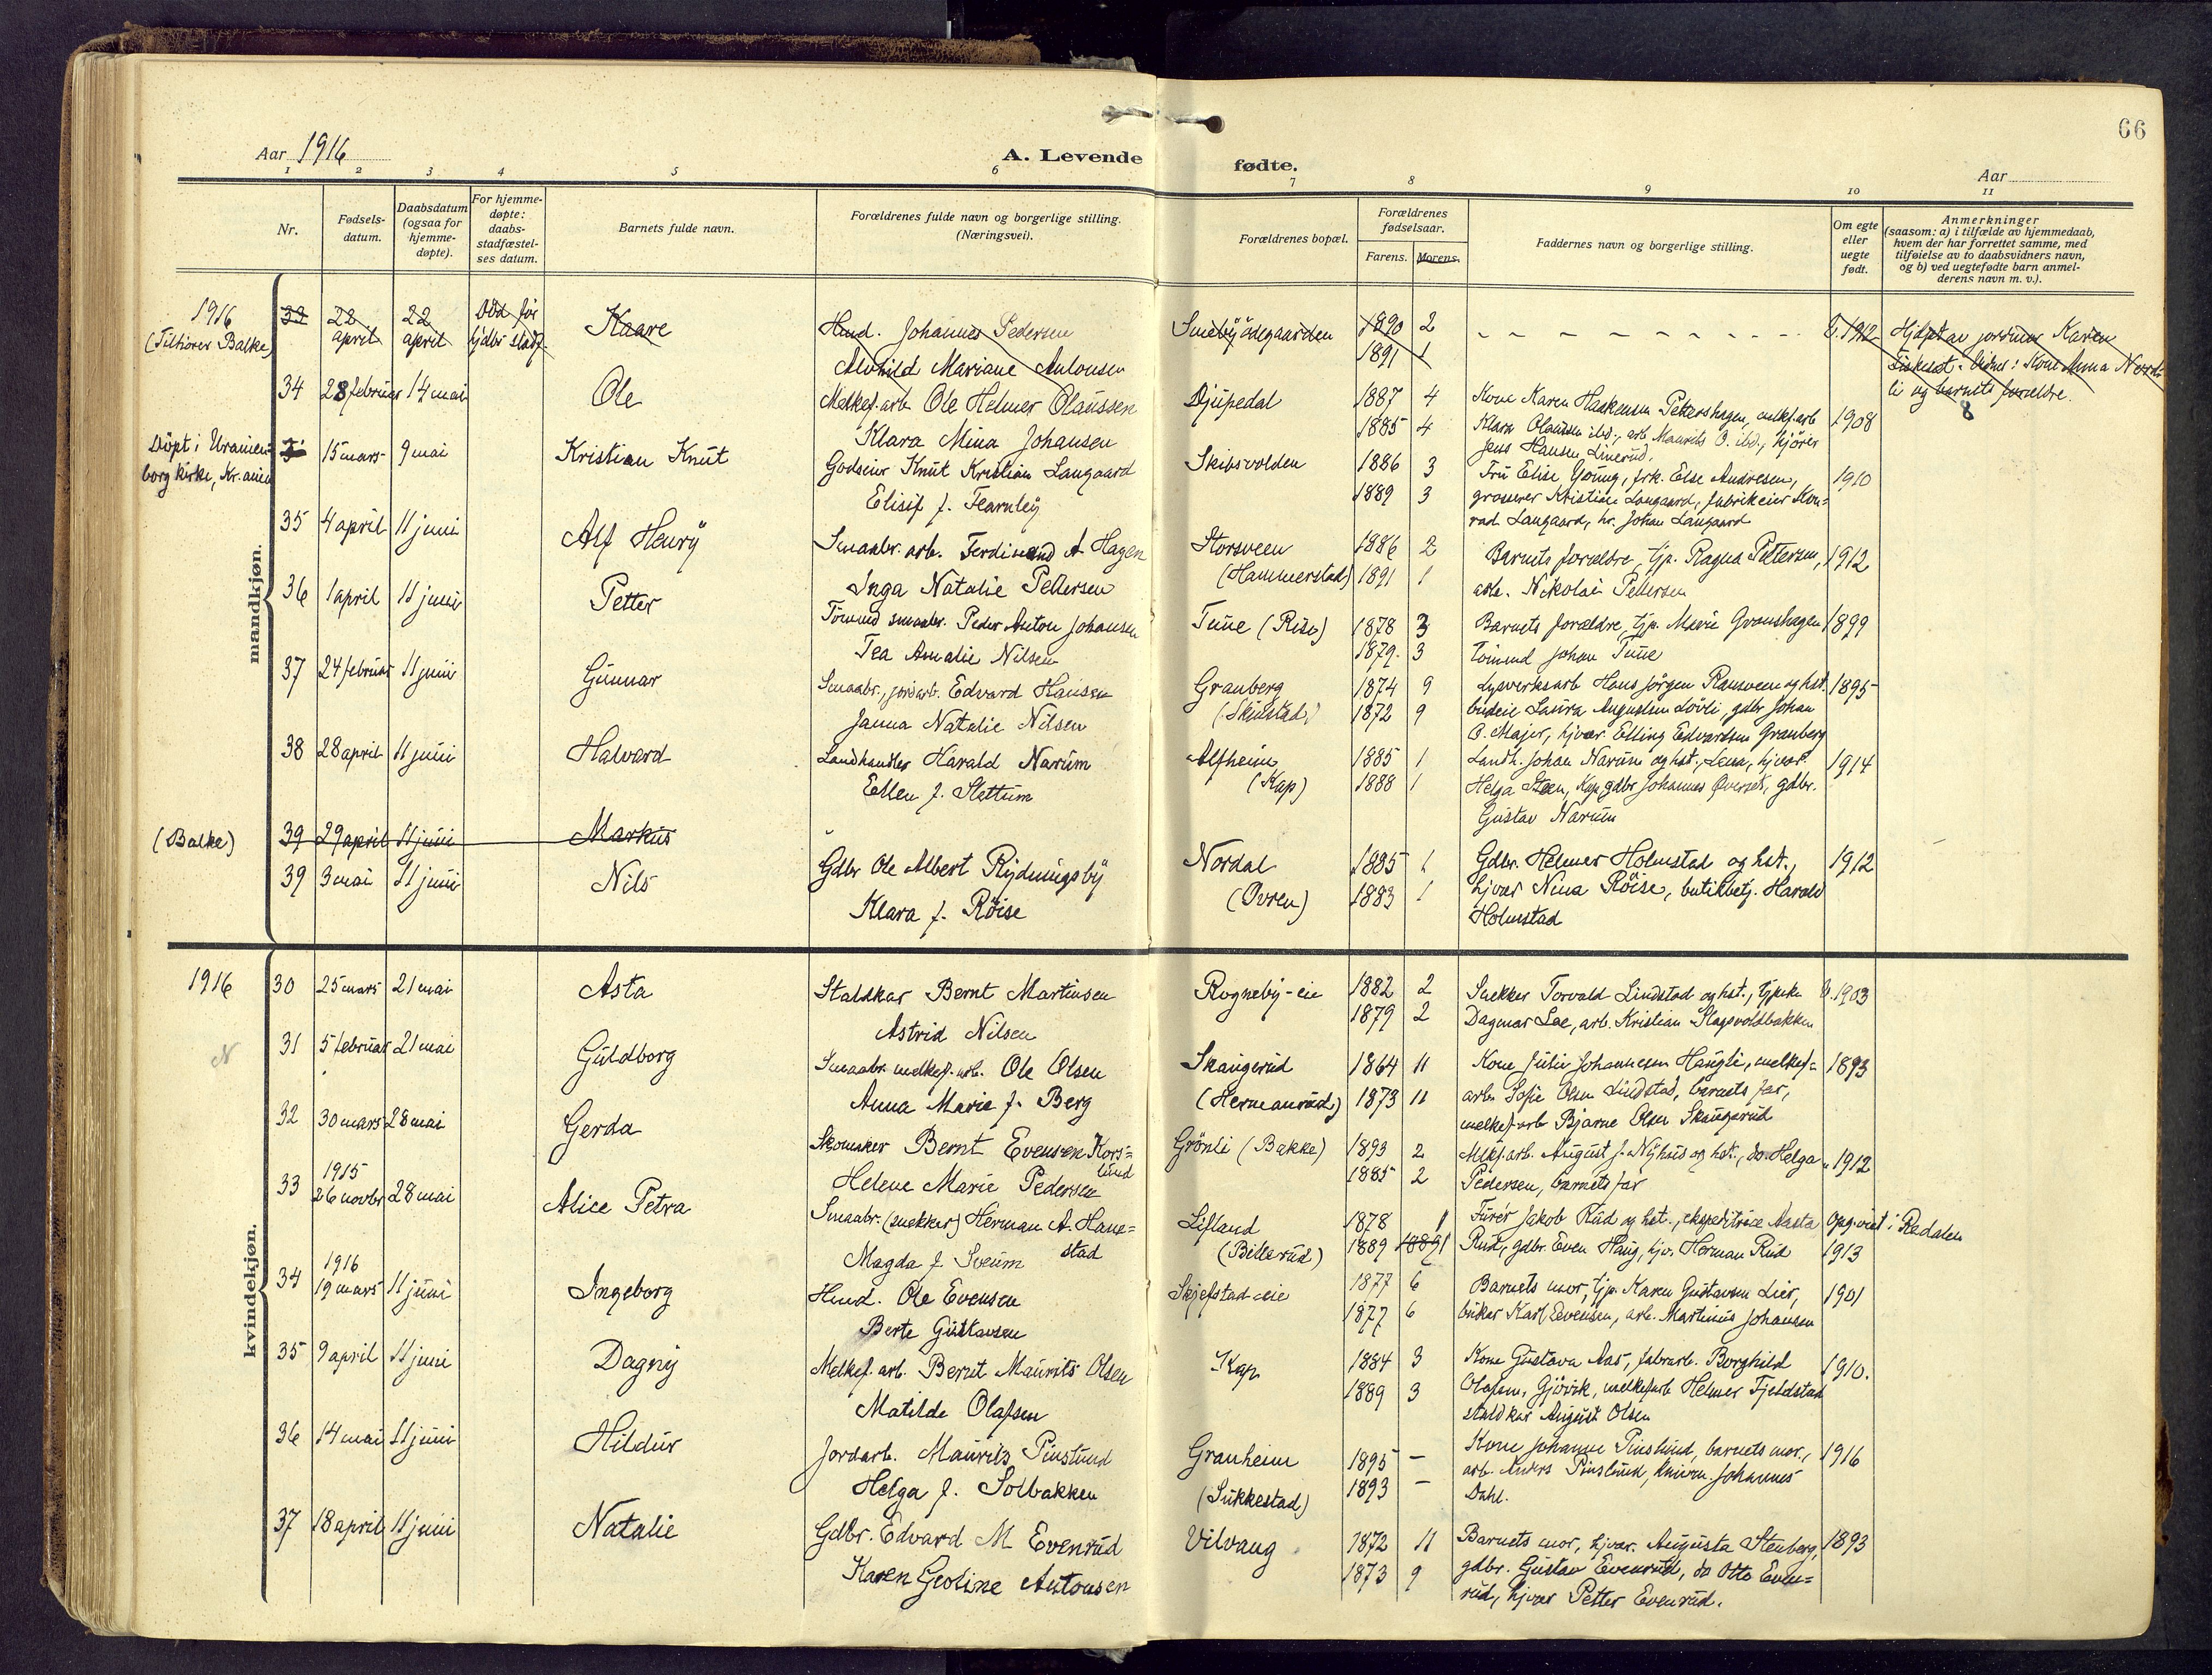 66
Aar 1916
A. Levende fødte.
Aar
1 2 3 4 5 6 7 8 9 10 11
Nr.
Fødsels-
datum.
Daabsdatum
(ogsaa for
hjemme-
døpte).
For hjemme-
døpte:
daabs-
stadfæstel-
ses datum.
Barnets fulde navn.
Forældrenes fulde navn og borgerlige stilling.
(Næringsvei).
Forældrenes bopæl.
Forældrenes
fødselsaar.
Farens. Morens.
Faddernes navn og borgerlige stilling.
Om egte
eller
uegte
født.
Anmerkninger
(saasom: a) i tilfælde av hjemmedaab,
hvem der har forrettet samme, med
tilføielse av to daabsvidners navn,
og b) ved uegtefødte barn anmel-
derens navn m. v.).
mandkjøn.
1916
(Tilhører Balke)
33 22 april 22 april Död før hjdbs stadf.
Kaare
Hmd. Johannes Pedersen
Alvhild Mariane Antonsen
Smebyødegaarden
1890 2
1891 1
1912
Hjdøpt av jordmor Karen
Fiskelöst. Vidner: Kone Anna Nord-
li og barnets forældre.
8
34 28 februar 14 mai
Ole
Melkef. arb. Ole Helmer Olaussen
Klara Mina Johansen
Djupedal
1887 4
1885 4
Kone Karen Haakensen Pettershagen, melkf.arb
Klara Olaussen ibd., arb. Maurits O. ibd., kjører
Jens Hansen Linerud.
1908
Döpt i Uranien-
borg kirke, Kr.ania
15 mars 9 mai
Kristian Knut
Godseier Knut Kristian Langaard
Elisif f. Fearnley
Skibsvolden
1886 3
1889 3
Fru Elise Young, frk. Else Andresen,
grosserer Kristian Langaard, fabrikeier Kon-
rad Langaard, hr. Johan Langaard
1910
35 4 april 11 juni
Alf Henry
Smaabr. arb. Ferdinand A. Hagen
Inga Natalie Pettersen
Storsveen
(Hammerstad)
1886 2
1891 1
Barnets forældre, tjp. Ragna Pettersen,
arb. Nikolai Pettersen
1912
36 1 april 11 juni
Petter
Tömmd smaabr. Peder Anton Johansen
Tea Amalie Nilsen
Tune (Rise)
1878 3
1879. 3
Barnets forældre, tjp. Marie Granshagen
tömmd Johan Tune
1899
37 24 februar 11 juni
Gunnar
Smaabr., jordarb. Edvard Hansen
Janna Natalie Nilsen
Granberg
(Skinstad)
1874 9
1872 9
Lysverksarb Hans Jörgen Ransveen og hst.
budeie Laura Augustsen Lövli, gdbr Johan
O. Majer, hjvær. Elling Edvardsen Granberg
1895
38 28 april 11 juni
Halvard
Landhandler Harald Narum
Ellen f. Slettum
Alfheim
(Kap)
1885 1
1888 1
Landh. Johan Narum og hst., Lena, hjvær.
Helga Steen, Kap, gdbr Johannes Överseth, gdbr.
Gustav Narum
1914
(Balke)
39 29 april 11 juni
Markus
39 3 mai 11 juni
Nils
Gdbr Ole Albert Rydningsby
Klara f. Röise
Nordal
(Ovren)
1885 1
1883 1
Gdbr. Helmer Holmstad og hst.,
hjvær Nina Röise, butikbetj. Harald
Holmstad
1912
kvindekjøn.
1916
30 25 mars 21 mai
Asta
Staldkar Bernt Martinsen
Astrid Nilsen
Rogneby-eie
1882 2
1879 2
Snekker Torvald Lindstad og hst., tjpike
Dagmar Lae, arb. Kristian Slagsvoldbakken
1903
N
31 5 februar 21 mai
Guldborg
Smaabr. melkef. arb. Ole Olsen
Anna Marie f. Berg
Skaugerud
(Hermanrud)
1864 11
1873 11
Kone Julie Johannesen Haugli, melkef-
arb. Sofie Olsen Lindstad, barnets far,
melkef-arb Bjarne Olsen Skaugerud
1893
32 30 mars 28 mai
Gerda
Skomaker Bernt Evensen Kors-
lund
Helene Marie Pedersen
Grönli (Bakke)
1893 2
1885 2
Mlkf.arb. August J. Nyhus og hst., do. Helga
Pedersen, barnets far
1912
33 1915 26 novbr 28 mai
Alice Petra
Smaabr. (snekker) Herman A. Hane-
stad
Magda f. Sveum
Lifland
(Billerud)
1878 1
1889
Furer Jakob Rud og hst., ekspeditrice Aasta
Rud, gdbr. Even Haug, hjv. Herman Rud
Opg. viet i Redalen
1913
34 1916 19 mars 11 juni
Ingeborg
Hmd. Ole Evensen
Berte Gustavsen
Skjefstad-eie
1877 6
1877 6
Barnets mor, tjp. Karen Gustavsen Lier,
bruker Karl Evensen, arb. Martinus Johansen
1901
35 9 april 11 juni
Dagny
Melkef. arb. Bernt Maurits Olsen
Matilde Olafsen
Kap
1884 3
1889 3
Kone Gustava Aas, fabrarb. Borghild
Olafsen, Gjövik, melkefarb Helmer Fjeldstad
staldkar August Olsen
1910.
36 14 mai 11 juni
Hildur
Jordarb. Maurits Pinslund
Helga f. Solbakken
Granheim
(Sukkestad)
1895 –
1893 –
Kone Johanne Pinslund, barnets mor,
arb. Anders Pinslund, Johannes
Dahl.
1916
37 18 april 11 juni
Natalie
Gdbr. Edvard M Evenrud
Karen Geoline Antonsen
Vilvang
1872 11
1873 9
Barnets mor, hjvær. Augusta Stenberg,
gdbr. Gustav Evenrud, do Otto Even-
rud, hjvær Petter Evenrud.
1893